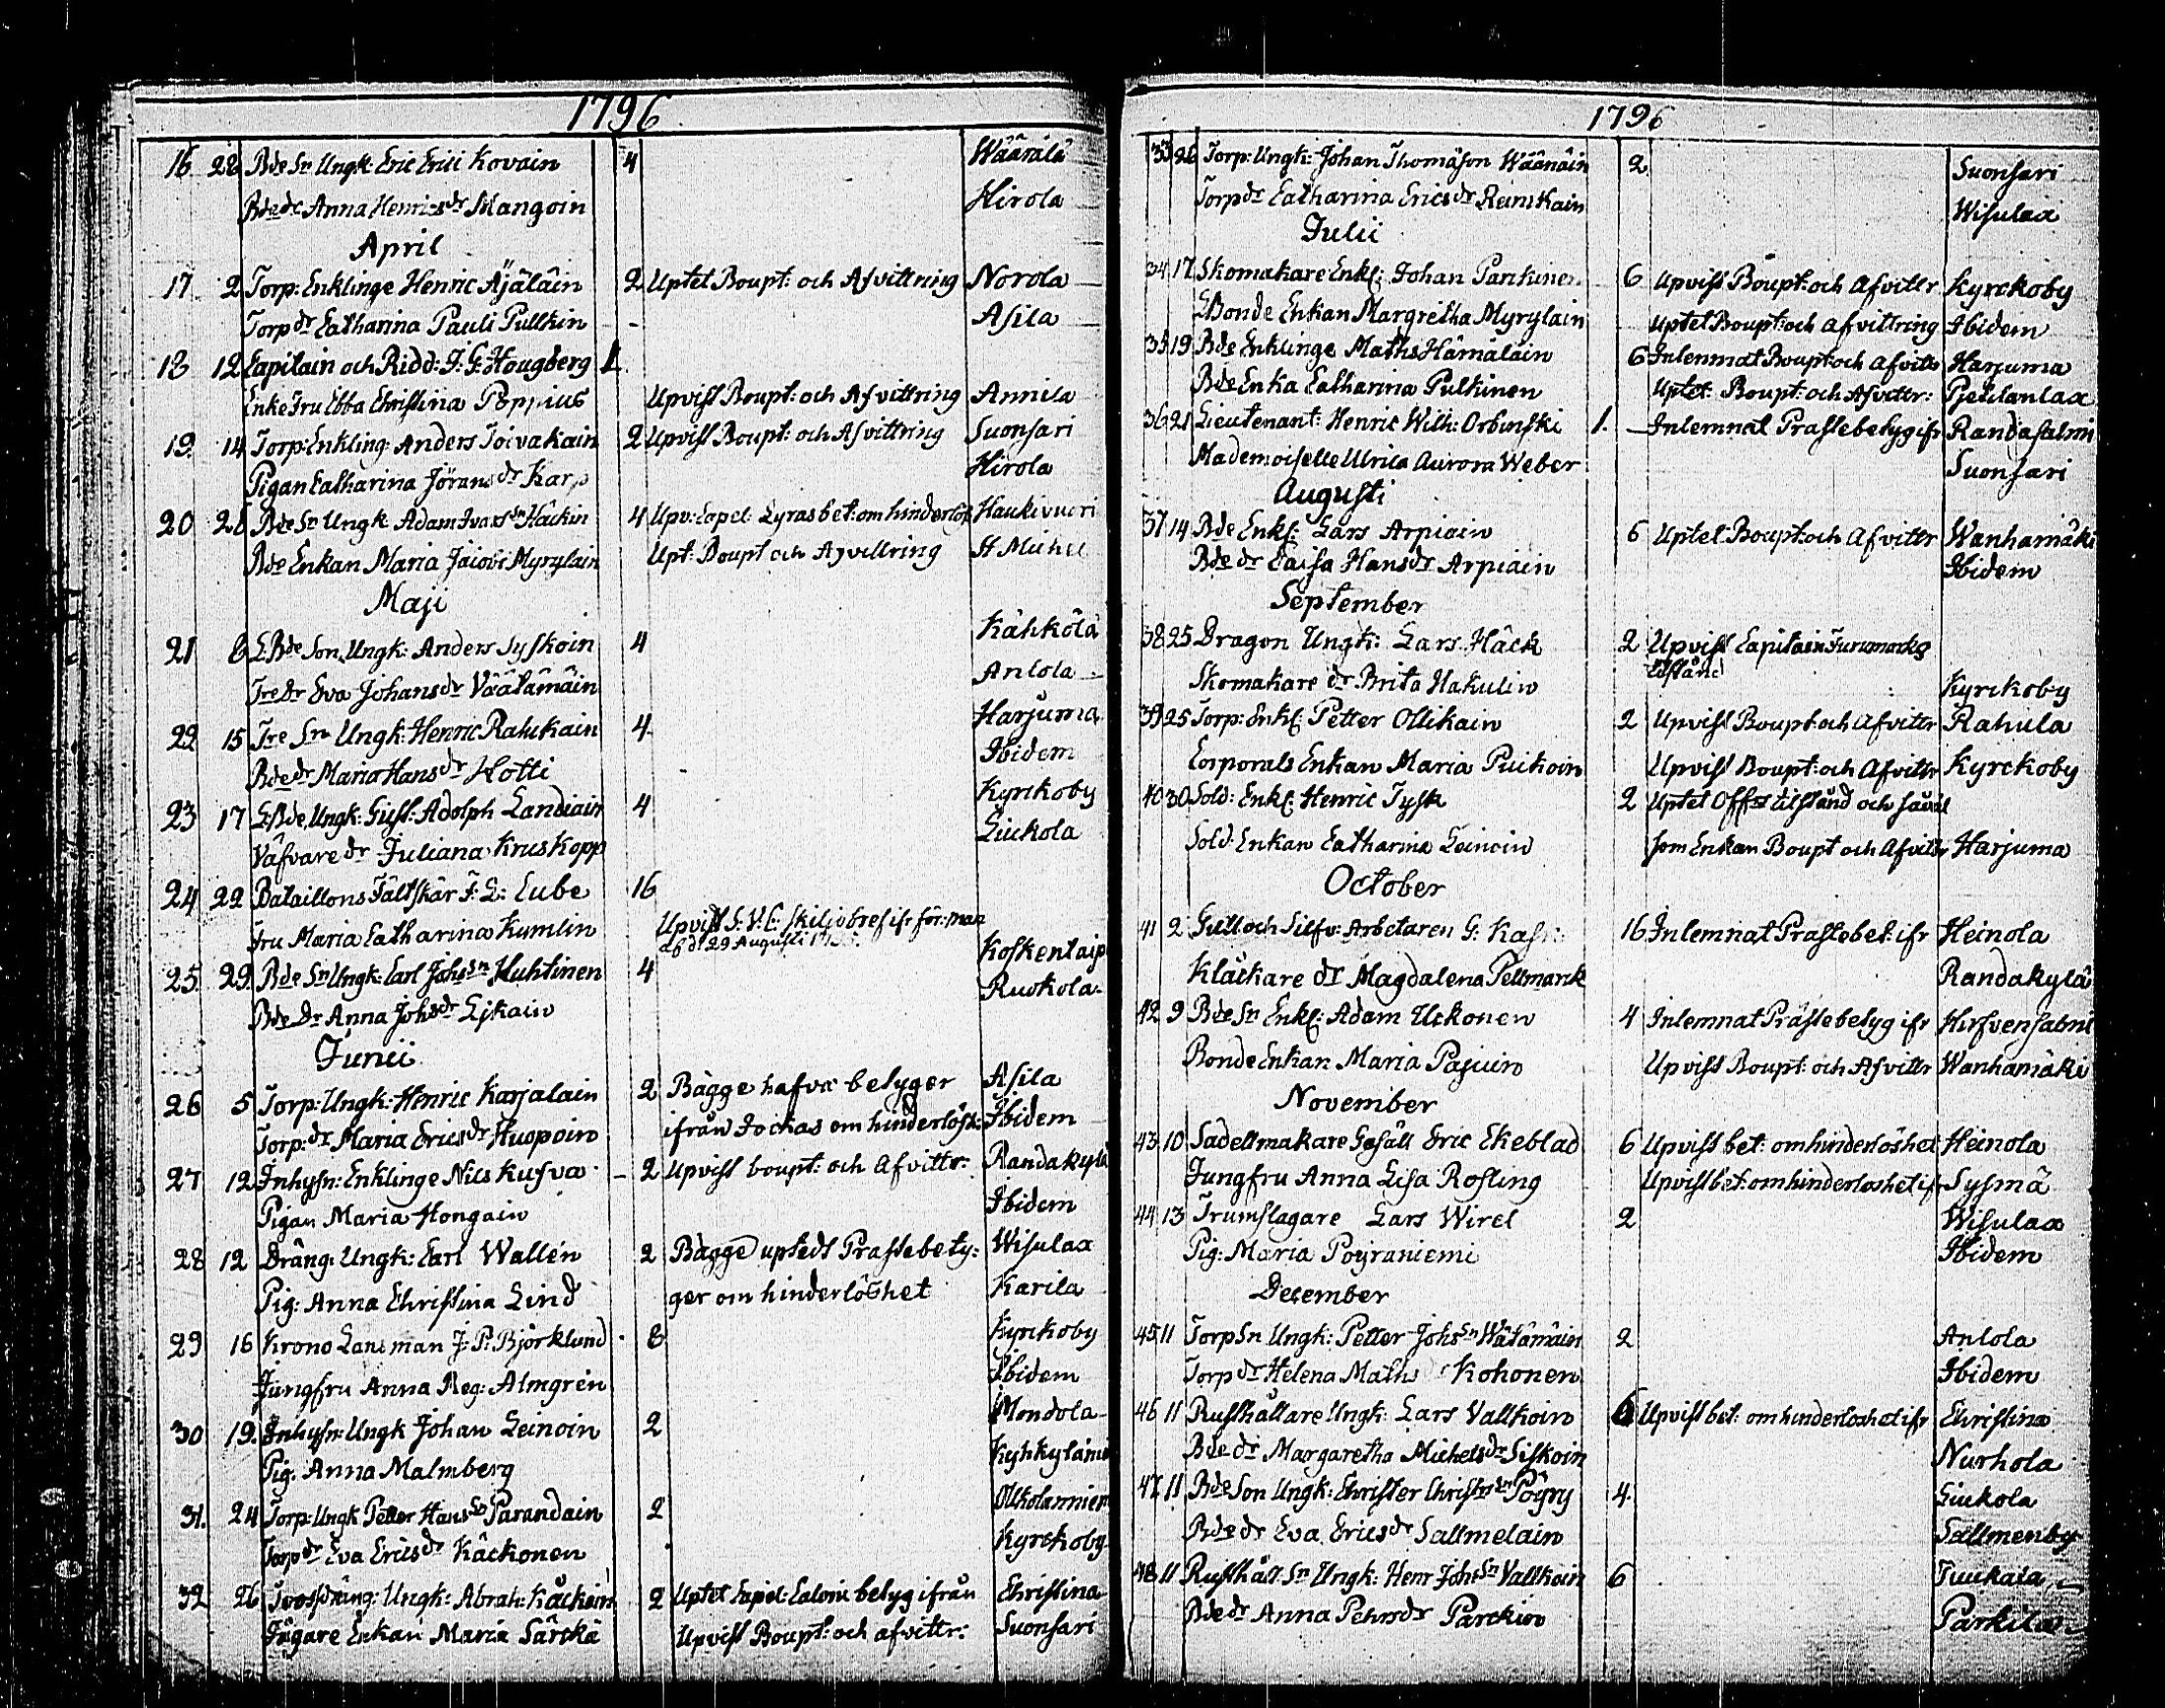 1796
16 28 Bde Sn Ungk: Eric Erici Kovain 4 Wäärälä
Bde dr Anna Henricsdr Mangoin Hirola
April
17 2 Torp: Enklinge Henric Äjäläin 2 Uptet Boupt: och Afvittring Norola
Torp dr Catharina Pauli Pullkin Asila
18 12 Capitain och Ridd: J: G: Hougberg 1
Enke Fru Ebba Christina Poppius Upvist Boupt: och Afvittring Annila
19 14 Torp: Enkling: Anders Toivakain 2 Upvist Boupt: och Afvittring Suonsari
Pigan Catharina Jöransdr Karp Hirola
20 28 Bde Sn Ungk Adam Ivarssn Häckin 4 Upv: Capel: Lyras bet: om hinderlös Haukivuori
Bde Enkan Maria Jacobi Myrylain Upt: Boupt och Afvittring St Michel
Maji
21 8 LBde Son Ungk: Anders Syskoin 4 Kähkölä
Tre Dr Eva Johansdr Väätämäin Anlola
22 15 Tre Sn Ungk: Henric Rahikain 4 Harjuma
Bde dr Maria Hansdr Hotti Ibidem
23 17 LBde Ungk: Gust: Adolph Landiain 4 Kyrckoby
Väfvare dr Juliana Kruskopp Liukola
24 22 Bataillons Fältskär F: L: Lube 16
Fru Maria Catharina Kumlin Upvist S: V: C: skiljobref ifr för: man af d: 29 Augusti Koskentaip
25 29 Bde Sn Ungk: Carl Johssn Huhtinen 4 Ruokola
Bde Dr Anna Johsdr Lijkain
Junii
26 5 Torp: Ungk: Henric Karjalain 2 Bägge hafva betyger Asila
Torp: dr Maria Ericsdr Huopoin ifrån Jockas om hinderlösh: Ibidem
27 12 Inhysn: Enklinge Nils Kusva 2 Upvist boupt: och Afvittr: Randakylä
Pigan Maria Hongain Ibidem
28 12 Dräng: Ungk: Carl Wallén 2 Bägge uptedt Prästebety: Wisulax
Pig: Anna Christina Lind ger om hinderlöshet Karila
29 16 Krono Lansman J: P: Björklund 8 Kyrckoby
Jungfru Anna Reg: Almgren Ibidem
30 19 Inhysn: Ungk Johan Leinoin 2 Mondola
Pig. Anna Malmberg Kyhkyläniem
31. 24 Torp: Ungk Petter Hanssn Parandain 2 Olkolanniem
Torp dr Eva Ericsdr Käckonen Kyrckoby
32 26 Trossdräng: Ungk: Abrah: Käckoin 2 Uptet Capel: Calonii betyg ifrån Christina
Jägare Enkan Maria Särckä Upvist Boupt: och afvittr: Suonsari
1796
33 26 Torp: Ungk: Johan Thomason Wäänäin 2 Suonsari
Torp dr Catharina Ericsdr Reinikain Wisulax
Julii
34 17 Skomakare Enkl: Johan Parckinen 6 Upvist Boupt: och Afvittr Kyrckoby
LBonde Enkan Margretha Myrylain Uptet Boupt: och Afvittring Ibidem
35 19 Bde Enklinge Maths Hämäläin 6 Inlemnat Boupt: och Afvittr Harjuma
Bde Enka Catharina Pulkinen Uptet Boupt: och Afvittr: Pjettanlax
36 21 Lieutenant: Henric Wilh: Orbinski 1. Inlemnat Prästebetyg ifr Randasalmi
Mademoiselle Ulrica Aurora Weber Suonsari
Augusti
37 14 Bde Enkl: Lars Arpiain 6 Uptet Boupt: och Afvittr Wanhamäki
Bde dr Caisa Hansdr Arpiain Ibidem
September
38 25 Dragon Ungk: Lars Häck 2 Upvist Capitain Furumarks tilstånd
Skomakare dr Brita Hakulin Kyrckoby
39 25 Torp: Enkl: Petter Ollikain 2 Upvist Boupt och Afvittr Rahula
Corporals Enkan Maria Puikoin Upvist Boupt: och Afvittr Kyrckoby
40 30 Sold: Enkl: Henric Tysk 2 Uptet Offrs tilstånd och såväl
Sold: Enkan Catharina Leinoin som Enkan Boupt och Afvittr Harjuma
October
41 2 Gull och Silfv: Arbetaren G: 16 Inlemnat Prästebet: ifr Heinola
Klåckare dr Magdalena Pellmarck Randakylä
42 9 Bde Sn Enkl: Adam Uckonen 4 Inlemnat Prästebetyg ifr Hirfvensalmi
Bonde Enkan Maria Pasuin Upvist Boupt: och Afvittr Wanhamäki
November
43 10 Sadelmakare Gesäll Eric Ekeblad 6 Upvist bet: om hinderlöshet Heinola
Jungfru Anna Lisa Rosling Upvist bet: om hinderloshet ifr Sysmä
44 13 Trumslagare Lars Wirel 2 Wisulax
Pig: Maria Pöyräniemi Ibidem
December
45 11 Torp Sn Ungk: Petter Johssn Wätämäin 2 Anlola
Torp dr Helena Maths Kohonen Ibidem
46 11 Rusthållare Ungk: Lars Valkoin 6 Upvist bet: om hinderloshet ifr Christina
Bde dr Margaretha Michelsdr Siskoin Nurhola
47 11 Bde Son Ungk: Christer Christersn Pöyry 4 Liukola
Bde dr Eva Ericsdr Sallmelain Sallmenby
48 11 Rusthåll Sn Ungk: Henr Johssn Valkoin 6 Tuukala
Bde dr Anna Pehrsdr Parckin Parkila